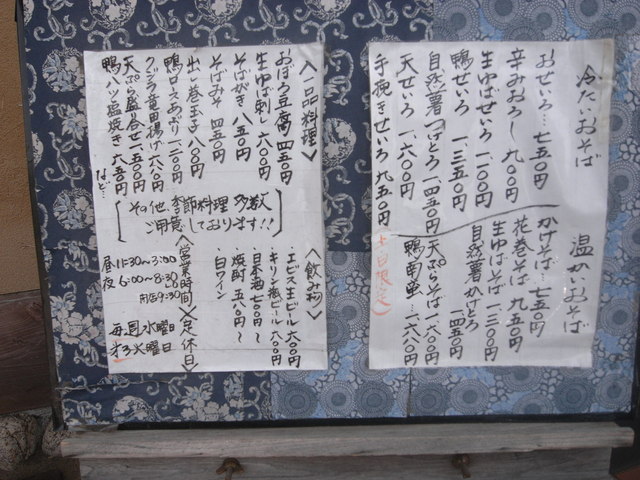 冷たいおそば
おせいろ…七五〇円
辛みおろし九〇〇円
生ゆばせいろ一一〇〇円
鴨せいろ 一、三五〇円
自然薯つけとろ一四五〇円
天せいろ 一、六〇〇円
手挽きせいろ 九五〇円
(土日限定)
温かいおそば
かけそば…七五〇円
花巻そば 九五〇円
生ゆばそば一、三〇〇円
自然薯かけとろ
一、四五〇円
天ぷらそば一六〇〇円
鴨南蛮…一、六八〇円
〈一品料理〉
おぼろ豆腐 四五〇円
生ゆば刺し 六〇〇円
そばがき 八五〇円
そばみそ 四五〇円
出し巻玉子 八〇〇円
鴨ロースあぶり一、二〇〇円
クジラ竜田揚げ六八〇円
天ぷら盛合一、五〇〇円
鴨ハツ塩焼き 六五〇円
など…
その他、季節料理多数
ご用意しております!!
〈飲み物〉
・エビス生ビール六〇〇円
・キリン瓶ビール六〇〇円
・日本酒七〇〇円〜
・焼酎 五八〇円〜
・白ワイン
〈営業時間〉
昼11:30〜3:00
夜 6:00〜8:30
閉店9:30
〈定休日〉
毎週水曜日
第3火曜日